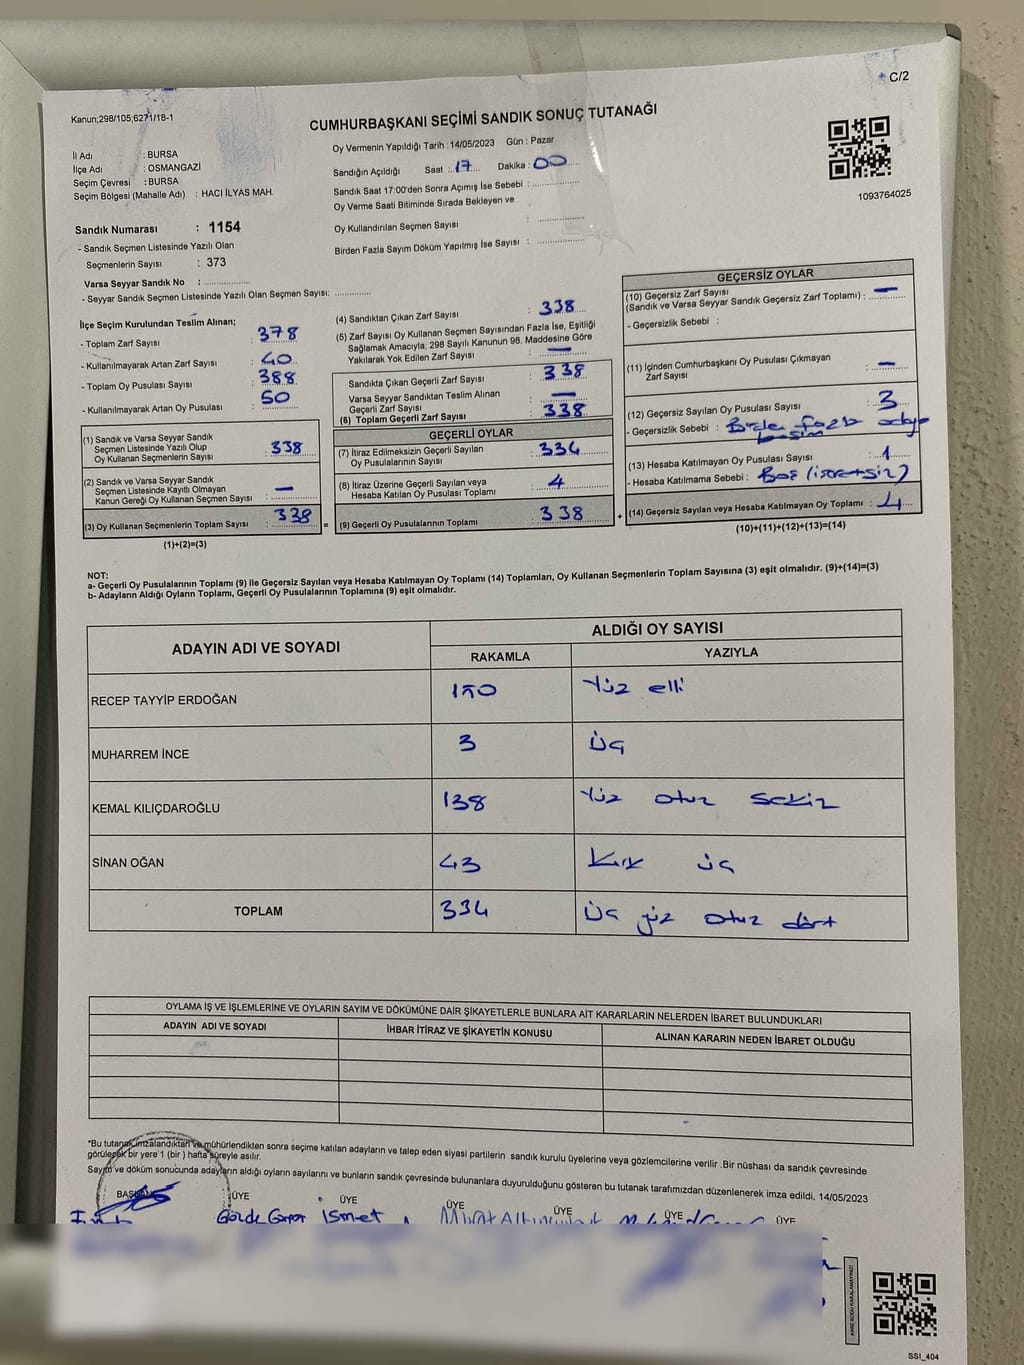 C/2
Kanun;298/105;6271/18-1
CUMHURBAŞKANI SEÇİMİ SANDIK SONUÇ TUTANAĞI
İl Adı : BURSA
İlçe Adı : OSMANGAZİ
Seçim Çevresi : BURSA
Seçim Bölgesi (Mahalle Adı) : HACI İLYAS MAH.
Sandık Numarası : 1154
- Sandık Seçmen Listesinde Yazılı Olan
Seçmenlerin Sayısı : 373
Varsa Seyyar Sandık No : ..................
- Seyyar Sandık Seçmen Listesinde Yazılı Olan Seçmen Sayısı: .............
Oy Vermenin Yapıldığı Tarih : 14/05/2023 Gün : Pazar
Sandığın Açıldığı Saat : 17 Dakika : 00
Sandık Saat 17:00'den Sonra Açımış İse Sebebi : ..................
Oy Verme Saati Bitiminde Sırada Bekleyen ve
Oy Kullandırılan Seçmen Sayısı : ..................
Birden Fazla Sayım Döküm Yapılmış İse Sayısı : ..................
1093764025
İlçe Seçim Kurulundan Teslim Alınan;
- Toplam Zarf Sayısı : 378
- Kullanılmayarak Artan Zarf Sayısı : 40
- Toplam Oy Pusulası Sayısı : 388
- Kullanılmayarak Artan Oy Pusulası : 50
(1) Sandık ve Varsa Seyyar Sandık
Seçmen Listesinde Yazılı Olup
Oy Kullanan Seçmenlerin Sayısı : 338
(2) Sandık ve Varsa Seyyar Sandık
Seçmen Listesinde Kayıtlı Olmayan
Kanun Gereği Oy Kullanan Seçmen Sayısı : —
(3) Oy Kullanan Seçmenlerin Toplam Sayısı : 338 =
(1)+(2)=(3)
(4) Sandıktan Çıkan Zarf Sayısı : 338
(5) Zarf Sayısı Oy Kullanan Seçmen Sayısından Fazla İse, Eşitliği
Sağlamak Amacıyla; 298 Sayılı Kanunun 98. Maddesine Göre
Yakılarak Yok Edilen Zarf Sayısı : —
Sandıkta Çıkan Geçerli Zarf Sayısı : 338
Varsa Seyyar Sandıktan Teslim Alınan
Geçerli Zarf Sayısı : —
(6) Toplam Geçerli Zarf Sayısı : 338
GEÇERLİ OYLAR
(7) İtiraz Edilmeksizin Geçerli Sayılan
Oy Pusulalarının Sayısı : 334
(8) İtiraz Üzerine Geçerli Sayılan veya
Hesaba Katılan Oy Pusulası Toplamı : 4
(9) Geçerli Oy Pusulalarının Toplamı : 338 +
GEÇERSİZ OYLAR
(10) Geçersiz Zarf Sayısı
(Sandık ve Varsa Seyyar Sandık Geçersiz Zarf Toplamı) : —
- Geçersizlik Sebebi :
(11) İçinden Cumhurbaşkanı Oy Pusulası Çıkmayan
Zarf Sayısı : —
(12) Geçersiz Sayılan Oy Pusulası Sayısı : 3
- Geçersizlik Sebebi : Birden fazla adaya
basım
(13) Hesaba Katılmayan Oy Pusulası Sayısı : 1
- Hesaba Katılmama Sebebi : Boş (işaretsiz)
(14) Geçersiz Sayılan veya Hesaba Katılmayan Oy Toplamı : 4
(10)+(11)+(12)+(13)=(14)
NOT:
a- Geçerli Oy Pusulalarının Toplamı (9) ile Geçersiz Sayılan veya Hesaba Katılmayan Oy Toplamı (14) Toplamları, Oy Kullanan Seçmenlerin Toplam Sayısına (3) eşit olmalıdır. (9)+(14)=(3)
b- Adayların Aldığı Oyların Toplamı, Geçerli Oy Pusulalarının Toplamına (9) eşit olmalıdır.
ADAYIN ADI VE SOYADI ALDIĞI OY SAYISI
RAKAMLA YAZIYLA
RECEP TAYYİP ERDOĞAN 150 Yüz elli
MUHARREM İNCE 3 Üç
KEMAL KILIÇDAROĞLU 138 Yüz otuz sekiz
SİNAN OĞAN 43 Kırk üç
TOPLAM 334 Üç yüz otuz dört
OYLAMA İŞ VE İŞLEMLERİNE VE OYLARIN SAYIM VE DÖKÜMÜNE DAİR ŞİKAYETLERLE BUNLARA AİT KARARLARIN NELERDEN İBARET BULUNDUKLARI
ADAYIN ADI VE SOYADI İHBAR İTİRAZ VE ŞİKAYETİN KONUSU ALINAN KARARIN NEDEN İBARET OLDUĞU
*Bu tutanak imzalandıktan ve mühürlendikten sonra seçime katılan adayların ve talep eden siyasi partilerin sandık kurulu üyelerine veya gözlemcilerine verilir .Bir nüshası da sandık çevresinde
görülecek bir yere 1 (bir ) hafta süreyle asılır.
Sayım ve döküm sonucunda adayların aldığı oyların sayılarını ve bunların sandık çevresinde bulunanlara duyurulduğunu gösteren bu tutanak tarafımızdan düzenlenerek imza edildi. 14/05/2023
BAŞKAN ÜYE ÜYE ÜYE ÜYE ÜYE ÜYE
İsmet
SSI_404